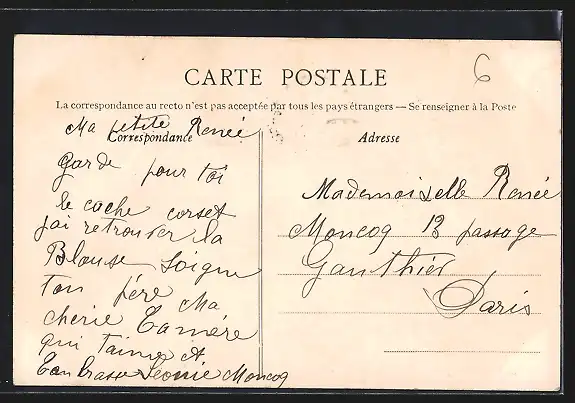 6
CARTE POSTALE
La correspondance au recto n'est pas acceptée par tous les pays étrangers — Se renseigner à la Poste
Correspondance
Ma petite Renée
garde pour toi
le cache corset
jai retrouver la
Blouse Soigne
ton père Ma
cherie Ta mère
qui taime et
Tembrasse Leonie Moncoq
Adresse
Mademoiselle Renée
Moncoq 13 passage
Gauthier
Paris